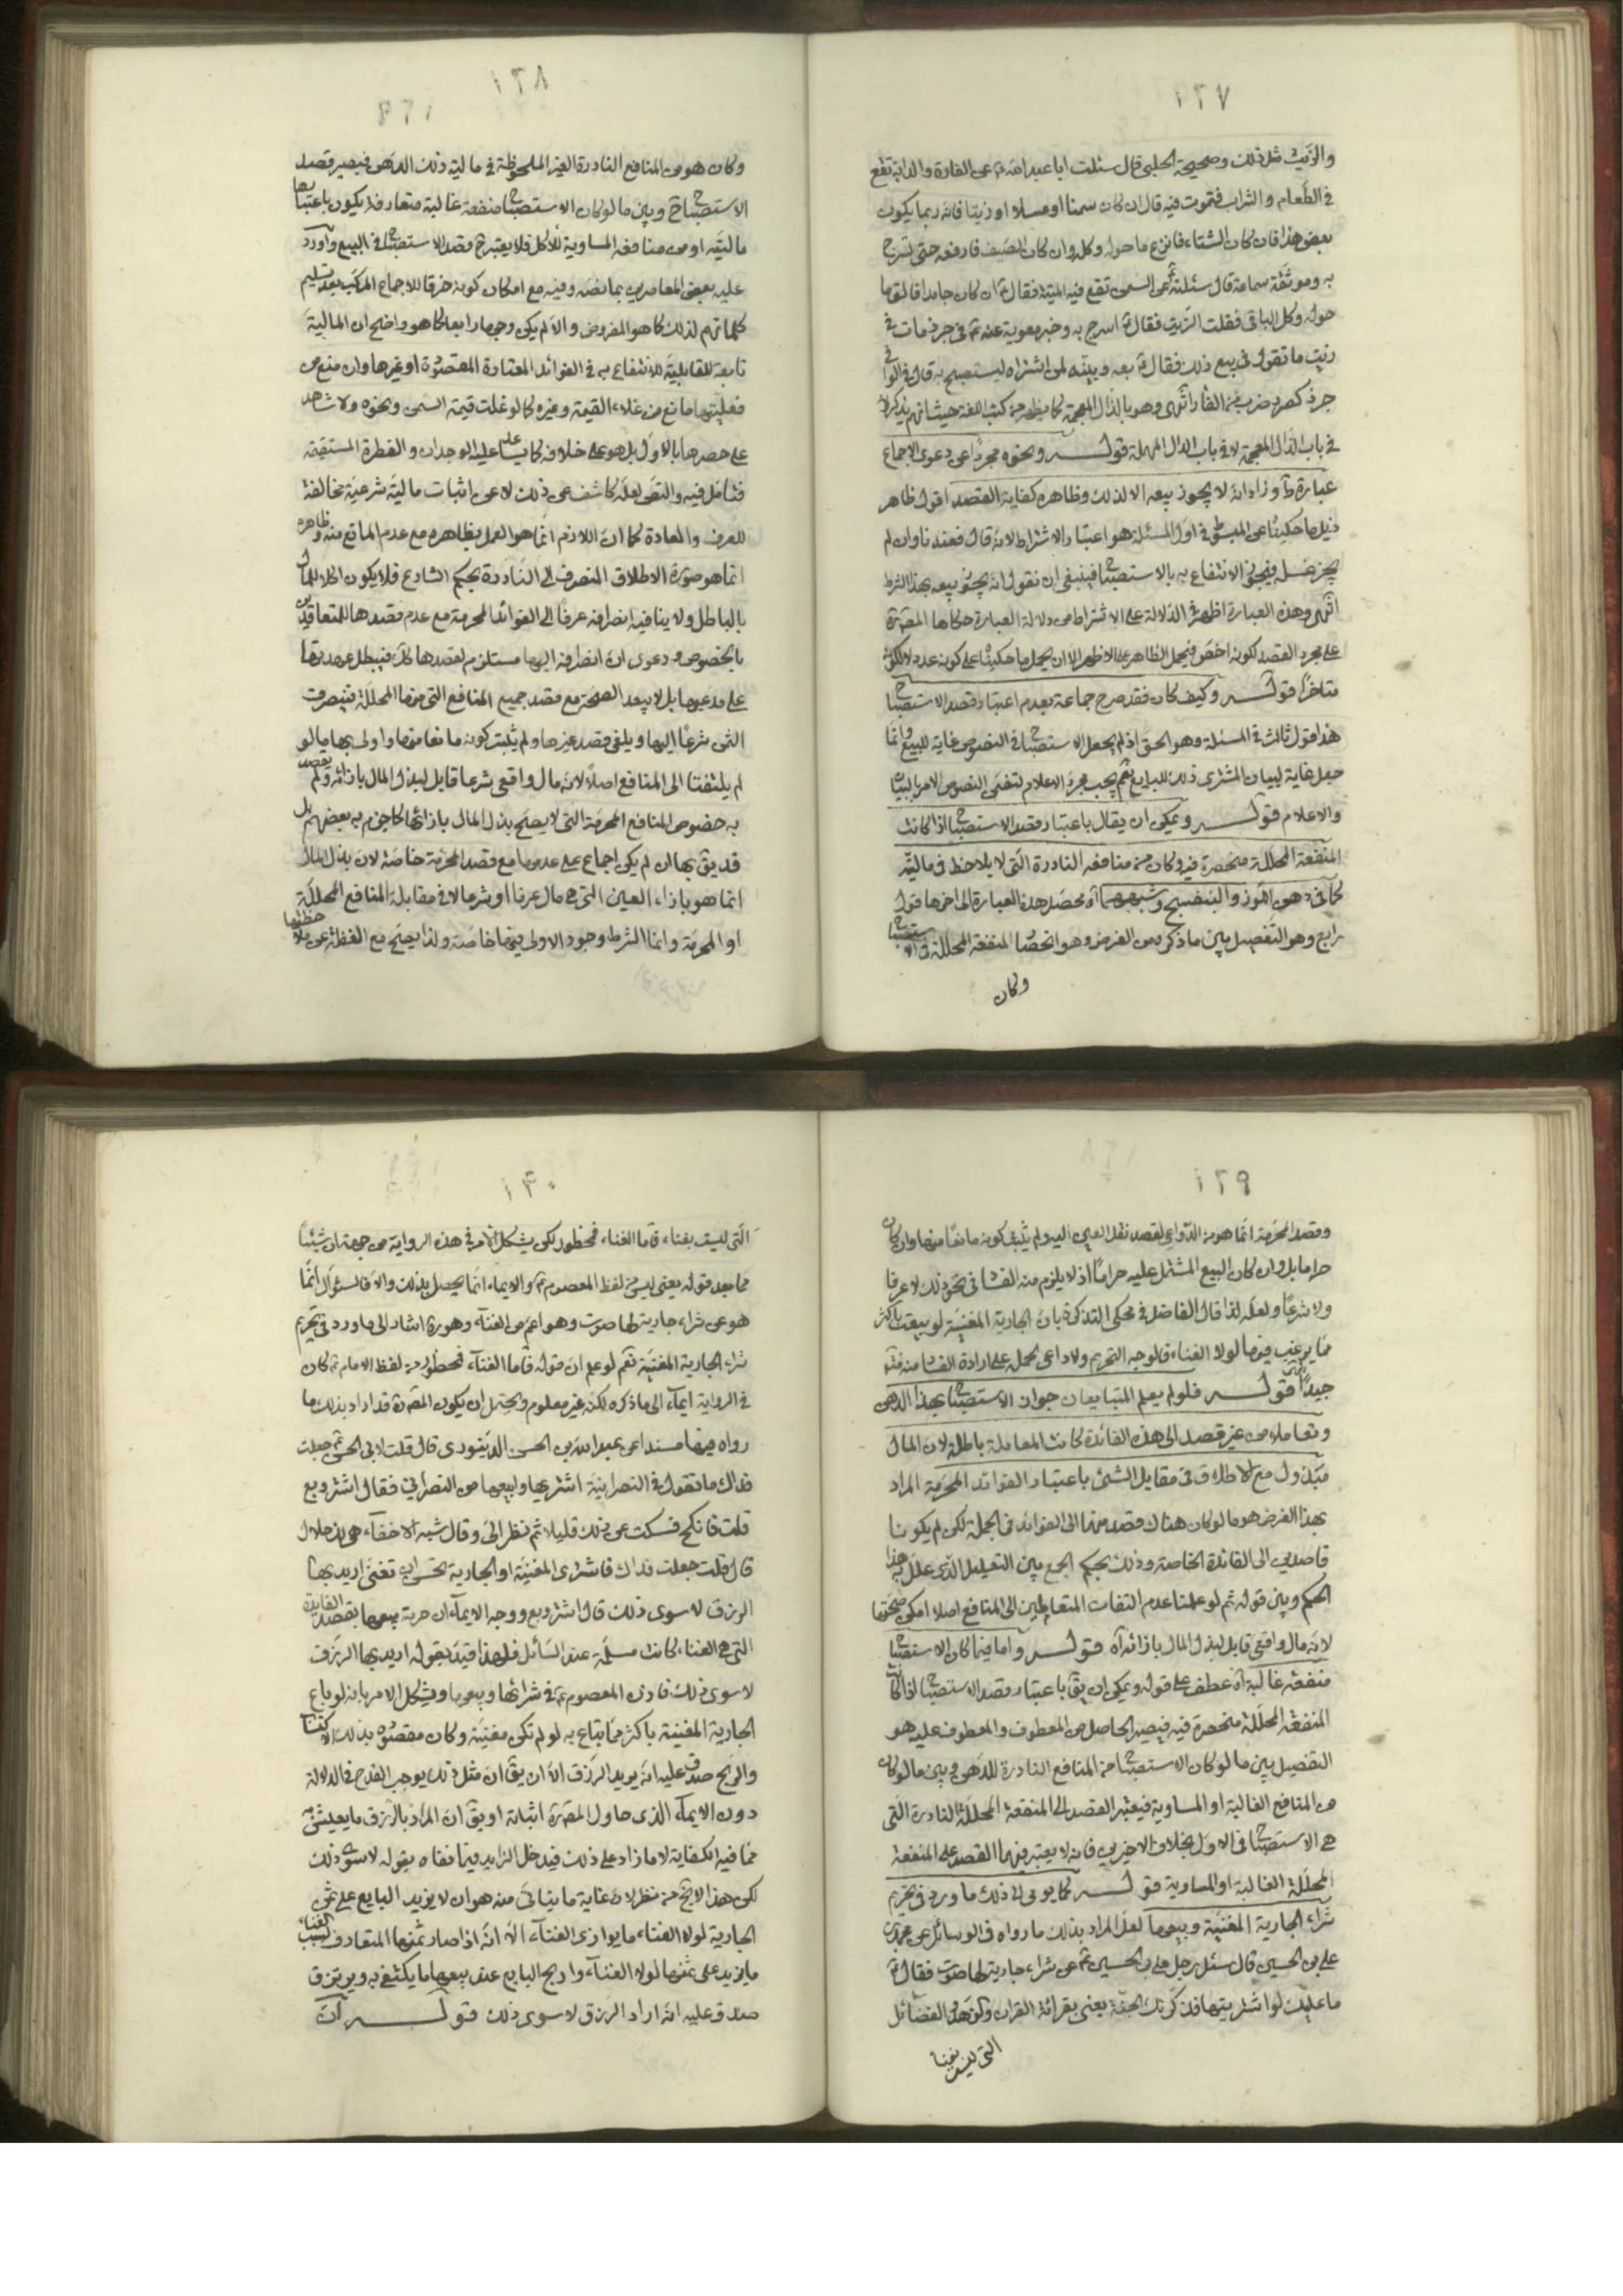 ١٢٧
والزيت مثل ذلك وصحيحة الحلبي قال سئلت ابا عبد الله ع عن الفارة والدابة تقع
في الطعام و الشراب فتموت فيه قال ان كان سمنا او عسلا او زيتا فانه ربما يكون
بعض هذا فان كان الشتاء فانزع ما حوله وكله وان كان الصيف فارفعه حتى تسرج
به وموثقة سماعة قال سئلته ع عن السمن تقع فيه الميتة فقال ع ان كان جامدا فالق ما
حوله وكل الباقي فقلت الزيت فقال ع اسرج به وخبر معوية عنه ع في جرذ مات في
زيت ما تقول في بيع ذلك فقال ع بعه وبينه لمن اشتراه ليستصبح به قال في الوافي
جرذ كصرد ضرب من الفار انتهى وهو بالذال المعجمة كما يظهر من كتب اللغة حيث انهم يذكرونه
في باب الذال المعجمة لا في باب الدال المهملة قوله ونحوه مجردا عن دعوى الاجماع
عبارة ط وزاد انه لا يجوز بيعه الا لذلك وظاهره كفاية القصد اقول ظاهر
ذيل ما حكيناه عن المبسوط في اول المسئلة هو اعتبار الاشتراط لانه قال فعندنا وان لم
يجز غسله فيجوز الانتفاع به بالاستصباح فينبغي ان نقول انه يجوز بيعه بهذا الشرط
انتهى وهذه العبارة اظهر في الدلالة على الاشتراط من دلالة العبارة حكاها المصره
على مجرد القصد لكونه اخص فيحمل الظاهر على الاظهر الا ان يحمل ما حكيناه على كونه عدولا لكونه
متاخرا قوله وكيف كان فقد صرح جماعة بعدم اعتبار قصد الاستصباح
هذا قول ثالث في المسئلة وهو الحق اذ لم يجعل الاستصباح في النصوص غاية للبيع وانما
جعل غاية لبيان المشتري ذلك للبايع نعم يجب مجرد الاعلام لتضمن النصوص الامر بالبيان
والاعلام قوله ويمكن ان يقال باعتبار قصد الاستصباح اذا كانت
المنفعة المحللة منحصرة فيه وكان من منافعه النادرة التي لا يلاحظ في ماليته
كما في دهن اللوز والبنفسج وشبههما اه محصل هذه العبارة الى اخرها قول
رابع وهو التفصيل بين ما ذكر من الفرض وهو انحصار المنفعة المحللة في الاستصباح
وكان
١٢٨
وكان هو من المنافع النادرة الغير الملحوظة في مالية ذلك الدهن فيصير قصد
الاستصباح ح وبين ما لو كان الاستصباح منفعة غالبة متعارفة يكون باعتبارها
ماليته او من منافعه المساوية للاكل فلا يعتبر ح قصد الاستصباح في البيع واورد
عليه بعض المعاصرين بما نصه وفيه مع امكان كونه خرقا للاجماع المركب بعد تسليم
كلماتهم لذلك كما هو المفروض والا لم يكن وجها رابعا كما هو واضح ان المالية
تابعة للقابلية للانتفاع به في الفوائد المعتادة المقصودة او غيرها وان منع من
فعليتها مانع من غلاء القيمة وغيره كما لو غلت قيمة السمن ونحوه ولا شاهد
على حصرها بالاول بل هو على خلافه كما يساعد عليه الوجدان والفطرة المستقيمة
فتامل فيه والنص لعله كاشف عن ذلك لا عن اثبات مالية شرعية مخالفة
للعرف والعادة كما ان اللازم انما هو العمل بظاهره مع عدم المانع منه وظاهره
انما هو صورة الاطلاق المنصرف الى النادرة بحكم الشارع فلا يكون اكلا للمال
بالباطل ولا ينافيه انصرافه عرفا الى الفوائد المحرمة مع عدم قصدها للمتعاقدين
بالخصوص ودعوى ان انصرافه اليها مستلزم لقصدها فيبطل عهدتها
على مدعيها بل لا يبعد الصحة مع قصد جميع المنافع التي منها المحللة فينصرف
الثمن شرعا اليها ويلغى قصد غيرها ولم يثبت كونه مانعا منها واولى بها ما لو
لم يلتفتا الى المنافع اصلا لانه مال واقعي شرعا قابل لبذل المال بازائه ولم يقصد
به خصوص المنافع المحرمة التي لا يصح بذل المال بازائها كما جزم به بعضهم بل
قد يق بها ان لم يكن اجماع على عدمها مع قصد المحرمة خاصة لان بذل المال
انما هو بازاء العين التي هي مال عرفا او شرعا لا في مقابلة المنافع المحللة
او المحرمة وانما الشرط وجود الاولى فيها خاصة ولذا يصح مع الغفلة عن ملاحظتها
١٢٩
وقصد المحرمة انما هو من الدواعي لقصد نقل العين اليه ولم يثبت كونه مانعا منها وان كان
حراما بل وان كان البيع المشتمل عليه حراما اذ لا يلزم منه الفساد في نحو ذلك لا عرفا
ولا شرعا ولعله لذا قال الفاضل في محكي التذكرة بان الجارية المغنية لو بيعت باكثر
مما يرغب فيها لولا الغناء فالوجه التحريم ولا داعي لحمله على ارادة الفساد منه فتامل
جيدا انتهى قوله فلو لم يعلم المتبايعان جواز الاستصباح بهذا الدهن
وتعاملا من غير قصد الى هذه الفائدة كانت المعاملة باطلة لان المال
مبذول مع الاطلاق في مقابل الشئ باعتبار الفوائد المحرمة المراد
بهذا الفرض هو ما لو كان هناك قصد منهما الى الفوائد في الجملة لكن لم يكونا
قاصدين الى الفائدة الخاصة وذلك بحكم الجمع بين التعليل الذي علل به هذا
الحكم وبين قوله ثم لو علمنا عدم التفات المتعاملين الى المنافع اصلا امكن صحتها
لانه مال واقعي قابل لبذل المال بازائه اه قوله واما فيما كان الاستصباح
منفعة غالبة اه عطف على قوله ويمكن ان يق باعتبار قصد الاستصباح اذا كانت
المنفعة المحللة منحصرة فيه فيصير الحاصل من المعطوف والمعطوف عليه هو
التفصيل بين ما لو كان الاستصباح من المنافع النادرة للدهن وبين ما لو كان
من المنافع الغالبة او المساوية فيعتبر القصد الى المنفعة المحللة النادرة التي
هي الاستصباح في الاول بخلاف الاخيرين فانه لا يعتبر فيهما القصد على المنفعة
المحللة الغالبة او المساوية قوله كما يومى الى ذلك ما ورد في تحريم
شراء الجارية المغنية وبيعها لعل المراد بذلك ما رواه في الوسائل عن محمد بن
علي بن الحسين قال سئل رجل علي بن الحسين ع عن شراء جارية لها صوت فقال ع
ما عليك لو اشتريتها فذكرتك الجنة يعني بقرائة القران والزهد والفضائل
التي ليست بغناء
١٣٠
التي ليست بغناء فاما الغناء فمحظور لكن يشكل الامر في هذه الرواية من جهة ان شيئا
مما بعد قوله يعني ليس من لفظ المعصوم ع والايماء انما يحصل بذلك والا فالسؤال انما
هو عن شراء جارية لها صوت وهو اعم من الغناء وهو ره اشار الى ما ورد في تحريم
شراء الجارية المغنية نعم لو علم ان قوله فاما الغناء فمحظور من لفظ الامام ع كان
في الرواية ايماء الى ما ذكره لكنه غير معلوم ويحتمل ان يكون المصره قد اراد بذلك ما
رواه فيها مسندا عن عبد الله بن الحسن الدينوري قال قلت لابي الحسن ع جعلت
فداك ما تقول في النصرانية اشتريها وابيعها من النصراني فقال اشتر وبع
قلت فانكح فسكت عن ذلك قليلا ثم نظر الي وقال شبه الاخفاء هي لك حلال
قال قلت جعلت فداك فاشتري المغنية او الجارية تحسن ان تغني اريد بها
الرزق لا سوى ذلك قال اشتر وبع ووجه الايماء ان حرمة بيعها بقصد الفايدة
التي هي الغناء كانت مسلمة عند السائل فلهذا قيد بقوله اريد بها الرزق
لا سوى ذلك فاذن المعصوم ع في شرائها وبيعها ويشكل الامر بانه لو باع
الجارية المغنية باكثر مما يباع به لو لم تكن مغنية وكان مقصوده بذلك الاكتساب
والربح صدق عليه انه يريد الرزق الا ان يق ان مثل ذلك يوجب القدح في الدلالة
دون الايماء الذي حاول المصره اثباته او يق ان المراد بالرزق ما يعيش به
مما فيه الكفاية لا ما زاد على ذلك فيدخل الزايد فيما نفاه بقوله لا سوى ذلك
لكن هذا لا يخ من نظر لان غاية ما يتاتى منه هو ان لا يزيد البايع على ثمن
الجارية لولا الغناء ما يوازي الغناء الا انه اذا صار ثمنها المتعارف بسبب الغناء
ما يزيد على ثمنها لولا الغناء واربح البايع عند بيعها ما يكتفي به ويرتزق
صدق عليه انه اراد الرزق لا سوى ذلك قوله ان